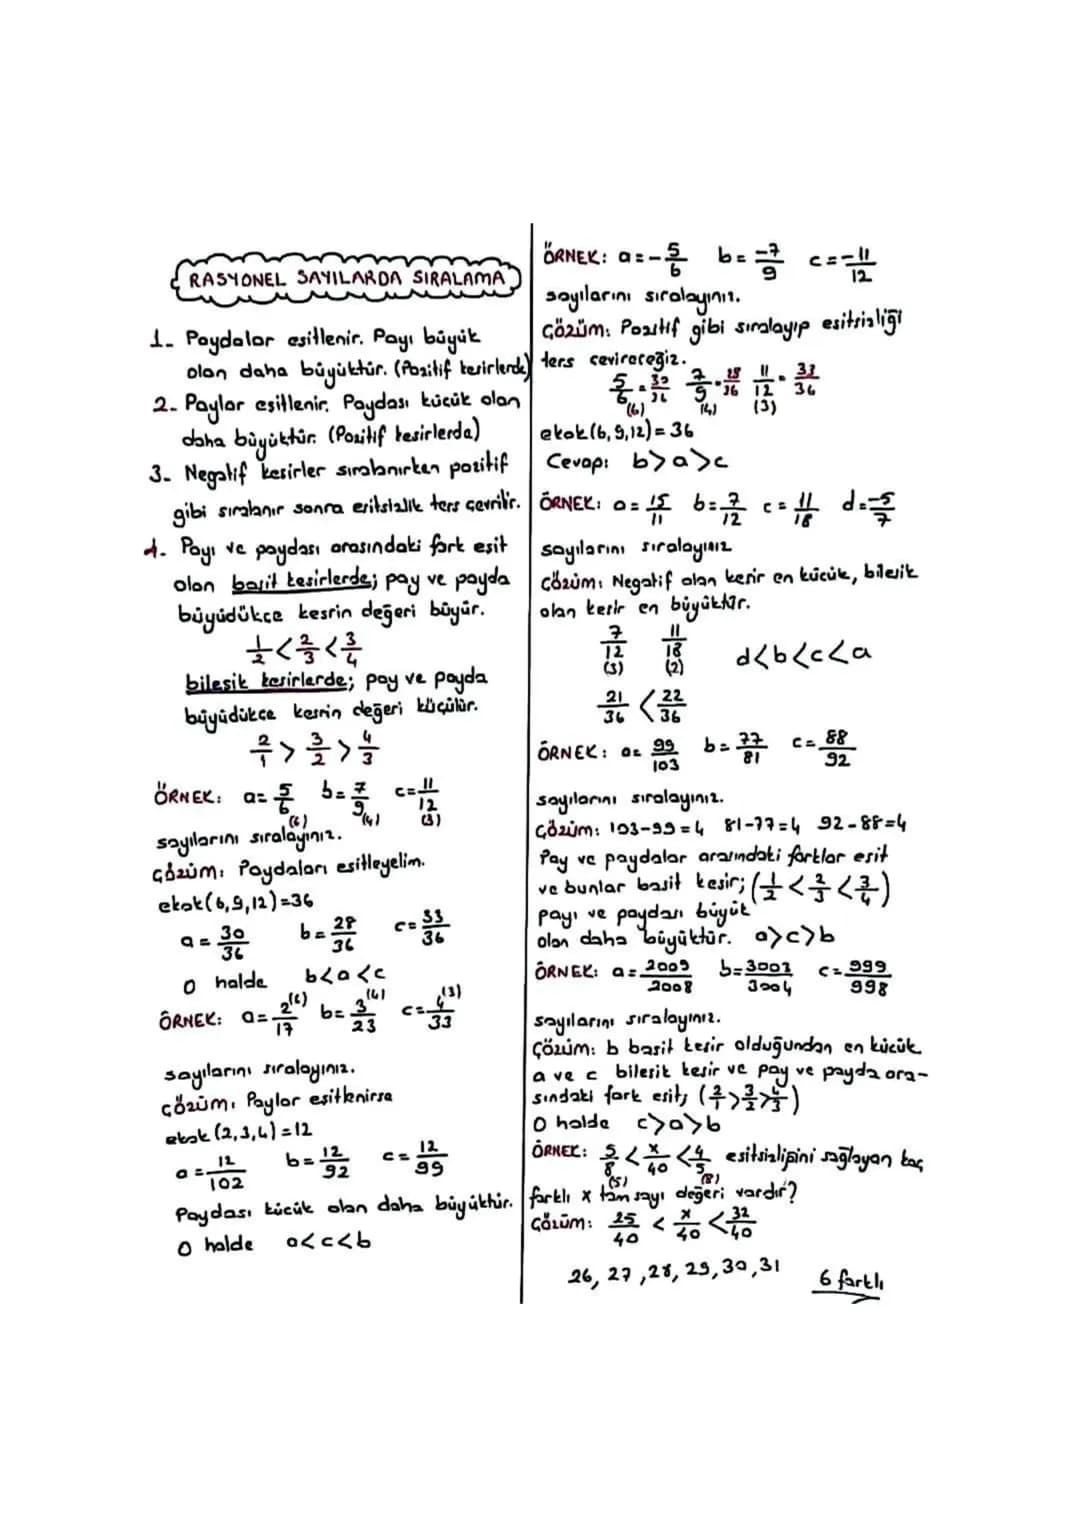 RASYONEL SAYILARDA SIRALAMA
1- Paydalar eşitlenir. Payı büyük
olan daha büyüktür. (Pozitif kesirlerde)
2- Paylar eşitlenir. Paydası küçük olan
daha büyüktür. (Pozitif kesirlerde)
3- Negatif kesirler sıralanırken pozitif
gibi sıralanır sonra eşitsizlik ters çevrilir.
4- Payı ve paydası arasındaki fark eşit
olan basit kesirlerde; pay ve payda
büyüdükçe kesrin değeri büyür.
1/2 < 2/3 < 3/4
bileşik kesirlerde; pay ve payda
büyüdükçe kesrin değeri küçülür.
2/1 > 3/2 > 4/3
ÖRNEK: a = 5/6 b = 7/9 c = 11/12
(6) (4) (3)
sayılarını sıralayınız.
Çözüm: Paydaları eşitleyelim.
ekok(6,9,12)=36
a = 30/36 b = 28/36 c = 33/36
O halde b<a<c
ÖRNEK: a = 2(6)/17 b = 3(4)/23 c = 4(3)/33
sayılarını sıralayınız.
Çözüm: Paylar eşitlenirse
ekok (2,3,4) = 12
a = 12/102 b = 12/92 c = 12/99
Paydası küçük olan daha büyüktür.
O halde a<c<b
ÖRNEK: a = -5/6 b = -7/9 c = -11/12
sayılarını sıralayınız.
Çözüm: Pozitif gibi sıralayıp eşitsizliği
ters çevireceğiz.
5/6 = 30/36 7/9 = 28/36 11/12 = 33/36
(6) (4) (3)
ekok(6,9,12) = 36
Cevap: b>a>c
ÖRNEK: a = 15/11 b = 7/12 c = 11/18 d = -5/7
sayılarını sıralayınız
Çözüm: Negatif olan kesir en küçük, bileşik
olan kesir en büyüktür.
7/12 11/18 d<b<c<a
(3) (2)
21/36 < 22/36
ÖRNEK: a = 99/103 b = 77/81 c = 88/92
sayılarını sıralayınız.
Çözüm: 103-99=4 81-77=4 92-88=4
Pay ve paydalar arasındaki farklar eşit
ve bunlar basit kesir; (1/2 < 2/3 < 3/4)
payı ve paydası büyük
olan daha büyüktür. a>c>b
ÖRNEK: a = 2009/2008 b = 3003/3004 c = 999/998
sayılarını sıralayınız.
Çözüm: b basit kesir olduğundan en küçük
a ve c bileşik kesir ve pay ve payda ara-
sındaki fark eşit; (2/1 > 3/2 > 4/3)
O halde c>a>b
ÖRNEK: 5/8 < x/40 < 4/5 eşitsizliğini sağlayan kaç
(5) (8)
farklı x tam sayı değeri vardır?
Çözüm: 25/40 < x/40 < 32/40
26, 27, 28, 29, 30, 31 6 farklı